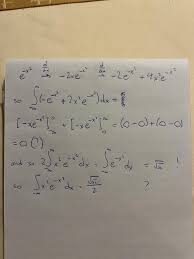 e^{-x^2} \frac{d}{dx} → -2xe^{-x^2} \frac{d}{dx} → -2e^{-x^2} + 4x^2e^{-x^2}
so ∫_{-∞}^{∞} (-e^{-x^2} + 2x^2e^{-x^2})dx =
[-xe^{-x^2}]_{-∞}^{0} + [-xe^{-x^2}]_{0}^{∞} = (0-0)+(0-0)
= 0 (?)
and so 2∫_{-∞}^{∞} x^2e^{-x^2}dx = ∫_{-∞}^{∞} e^{-x^2}dx = √π !
so ∫_{-∞}^{∞} x^2e^{-x^2}dx = \frac{√π}{2} ?